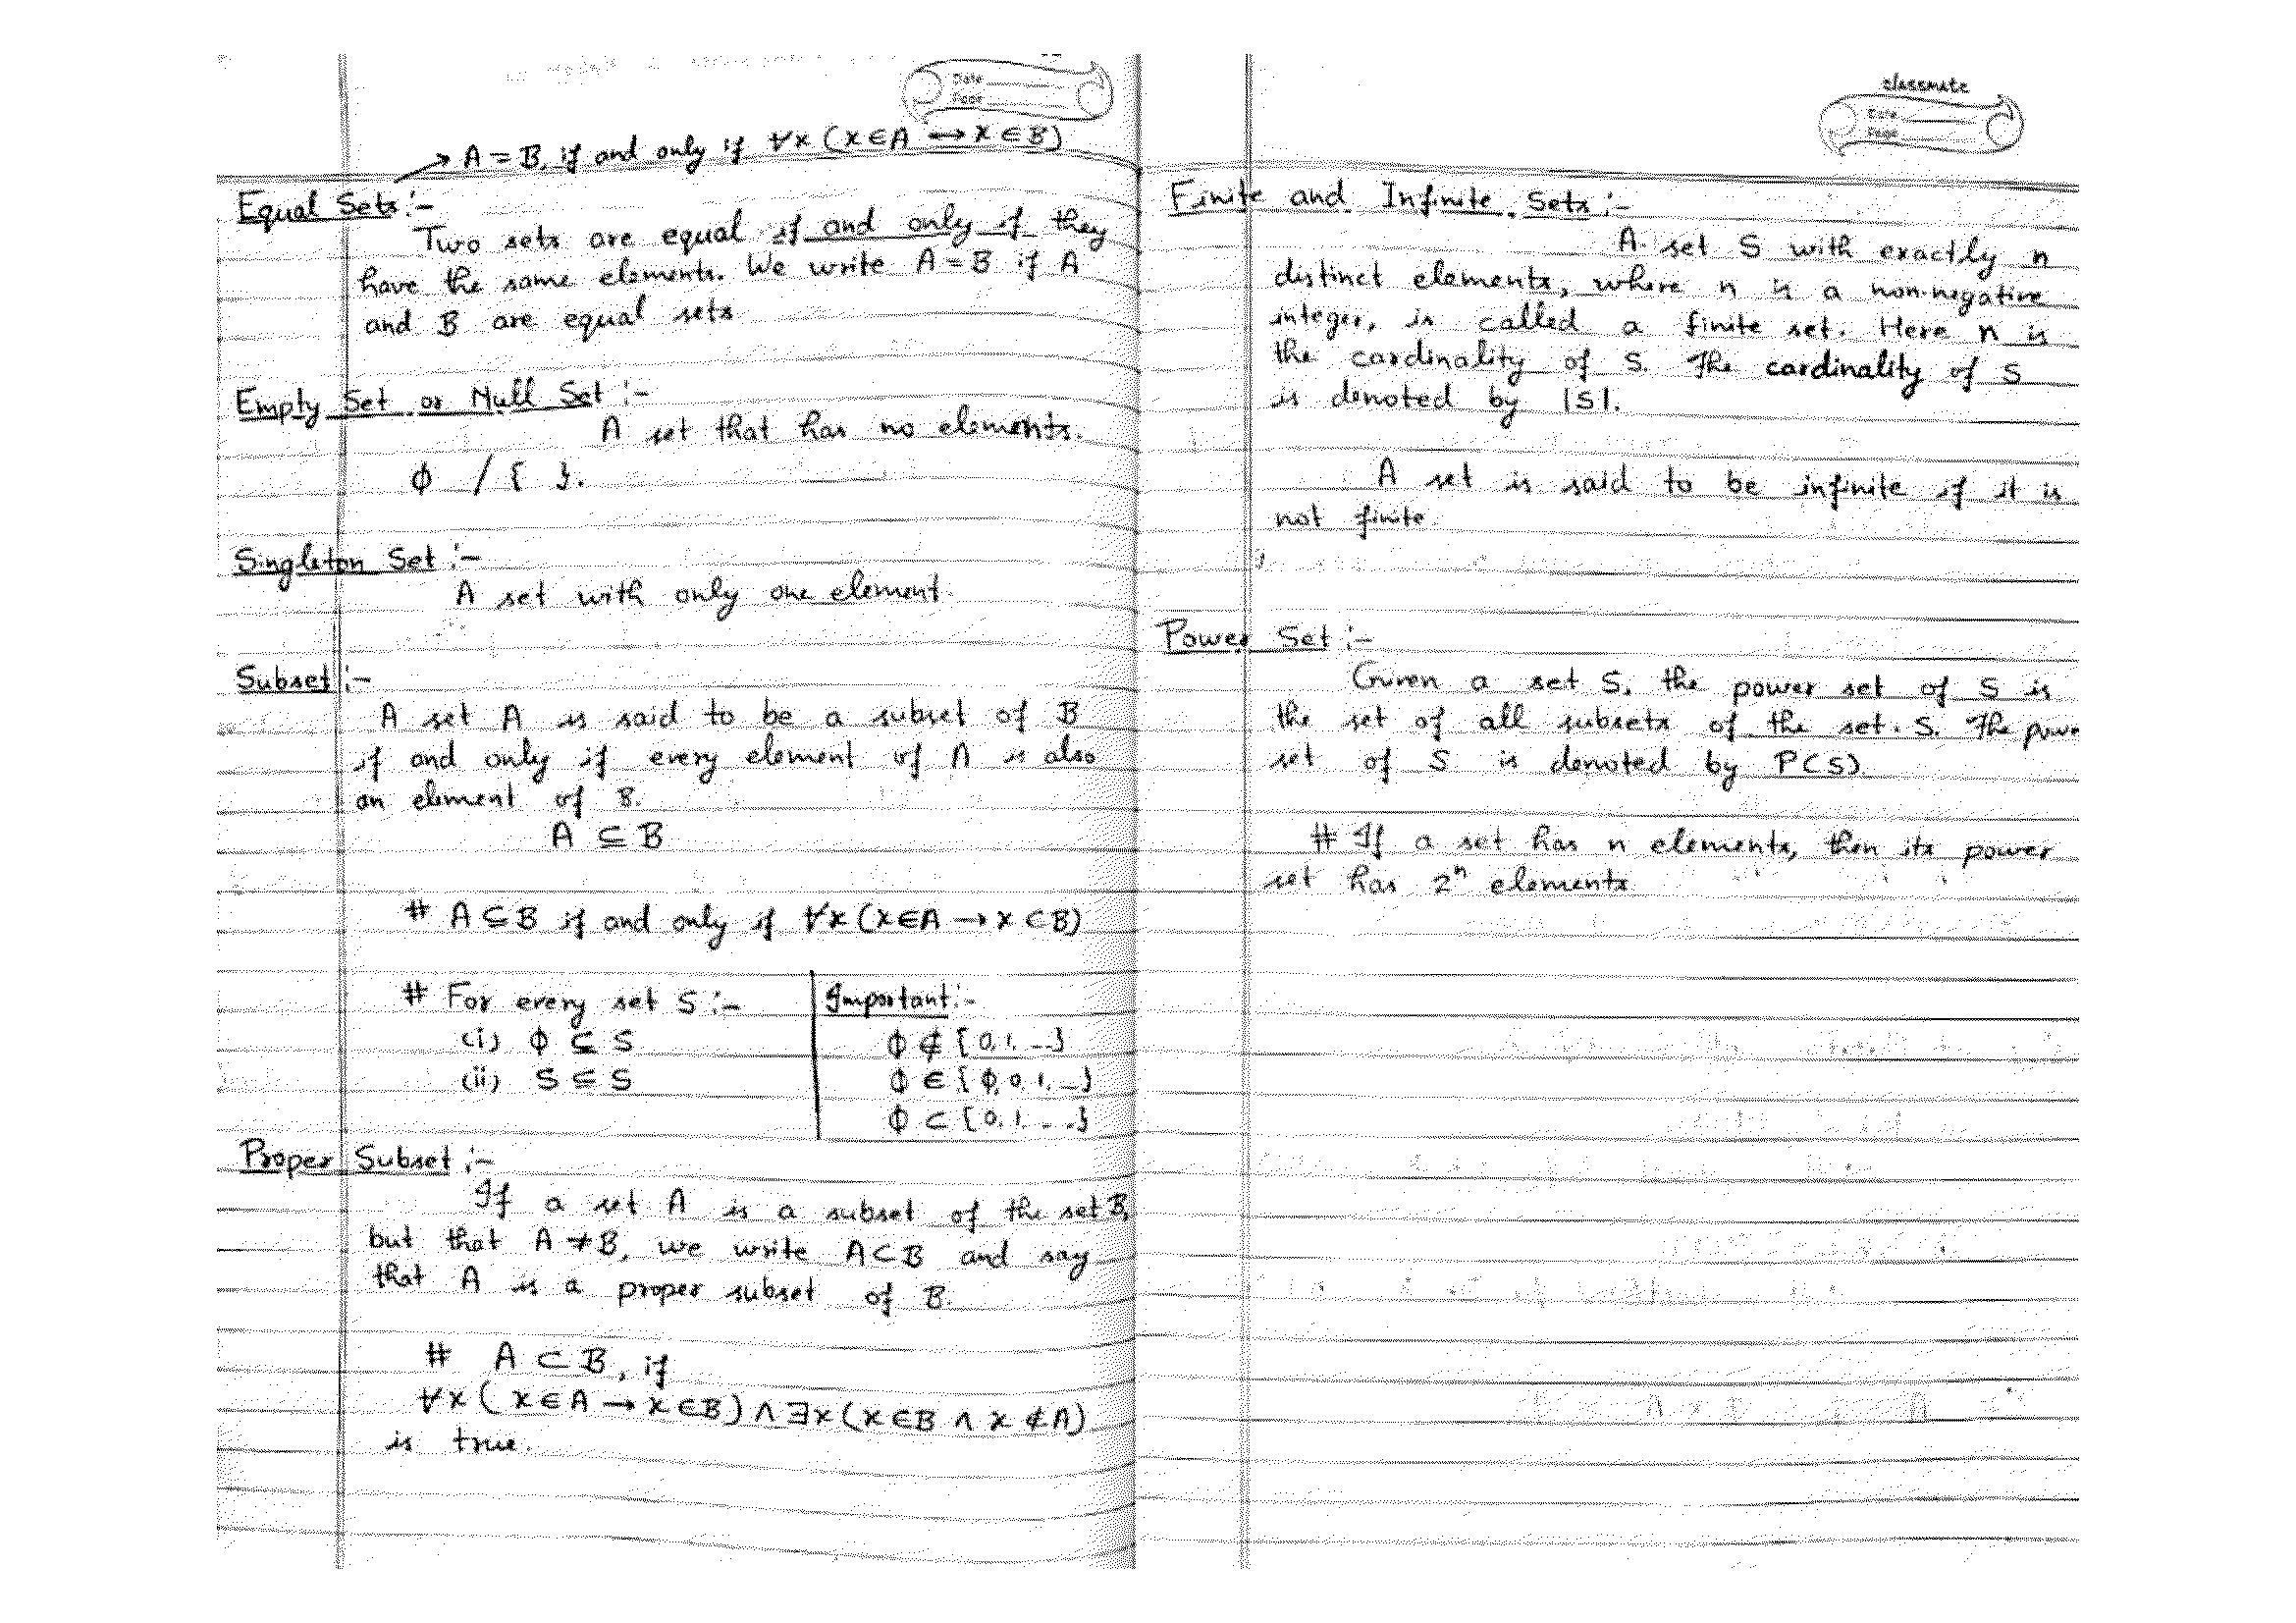 Date
Page
→ A = B, if and only if ∀x (x ∈ A ↔ x ∈ B)
Equal Sets :-
Two sets are equal if and only if they
have the same elements. We write A = B if A
and B are equal sets
Empty Set or Null Set :-
A set that has no elements.
ϕ / { }.
Singleton Set :-
A set with only one element.
Subset :-
A set A is said to be a subset of B
if and only if every element of A is also
an element of B.
A ⊆ B
# A ⊆ B if and only if ∀x (x ∈ A → x ⊂ B)
# For every set S :-
(i) ϕ ⊆ S
(ii) S ⊆ S
Important :-
ϕ ∉ { 0, 1, -- }
ϕ ∈ { ϕ, 0, 1, -- }
ϕ ⊂ { 0, 1, -- }
Proper Subset :-
If a set A is a subset of the set B,
but that A ≠ B, we write A ⊂ B and say
that A is a proper subset of B.
# A ⊂ B, if
∀x ( x ∈ A → x ∈ B ) ∧ ∃x ( x ∈ B ∧ x ∉ A )
is true.
classmate
Date
Page
Finite and Infinite Sets :-
A set S with exactly n
distinct elements, where n is a non-negative
integer, is called a finite set. Here n is
the cardinality of S. The cardinality of S
is denoted by |S|.
A set is said to be infinite if it is
not finite.
Power Set :-
Given a set S, the power set of S is
the set of all subsets of the set S. The power
set of S is denoted by P(S).
# If a set has n elements, then its power
set has 2ⁿ elements